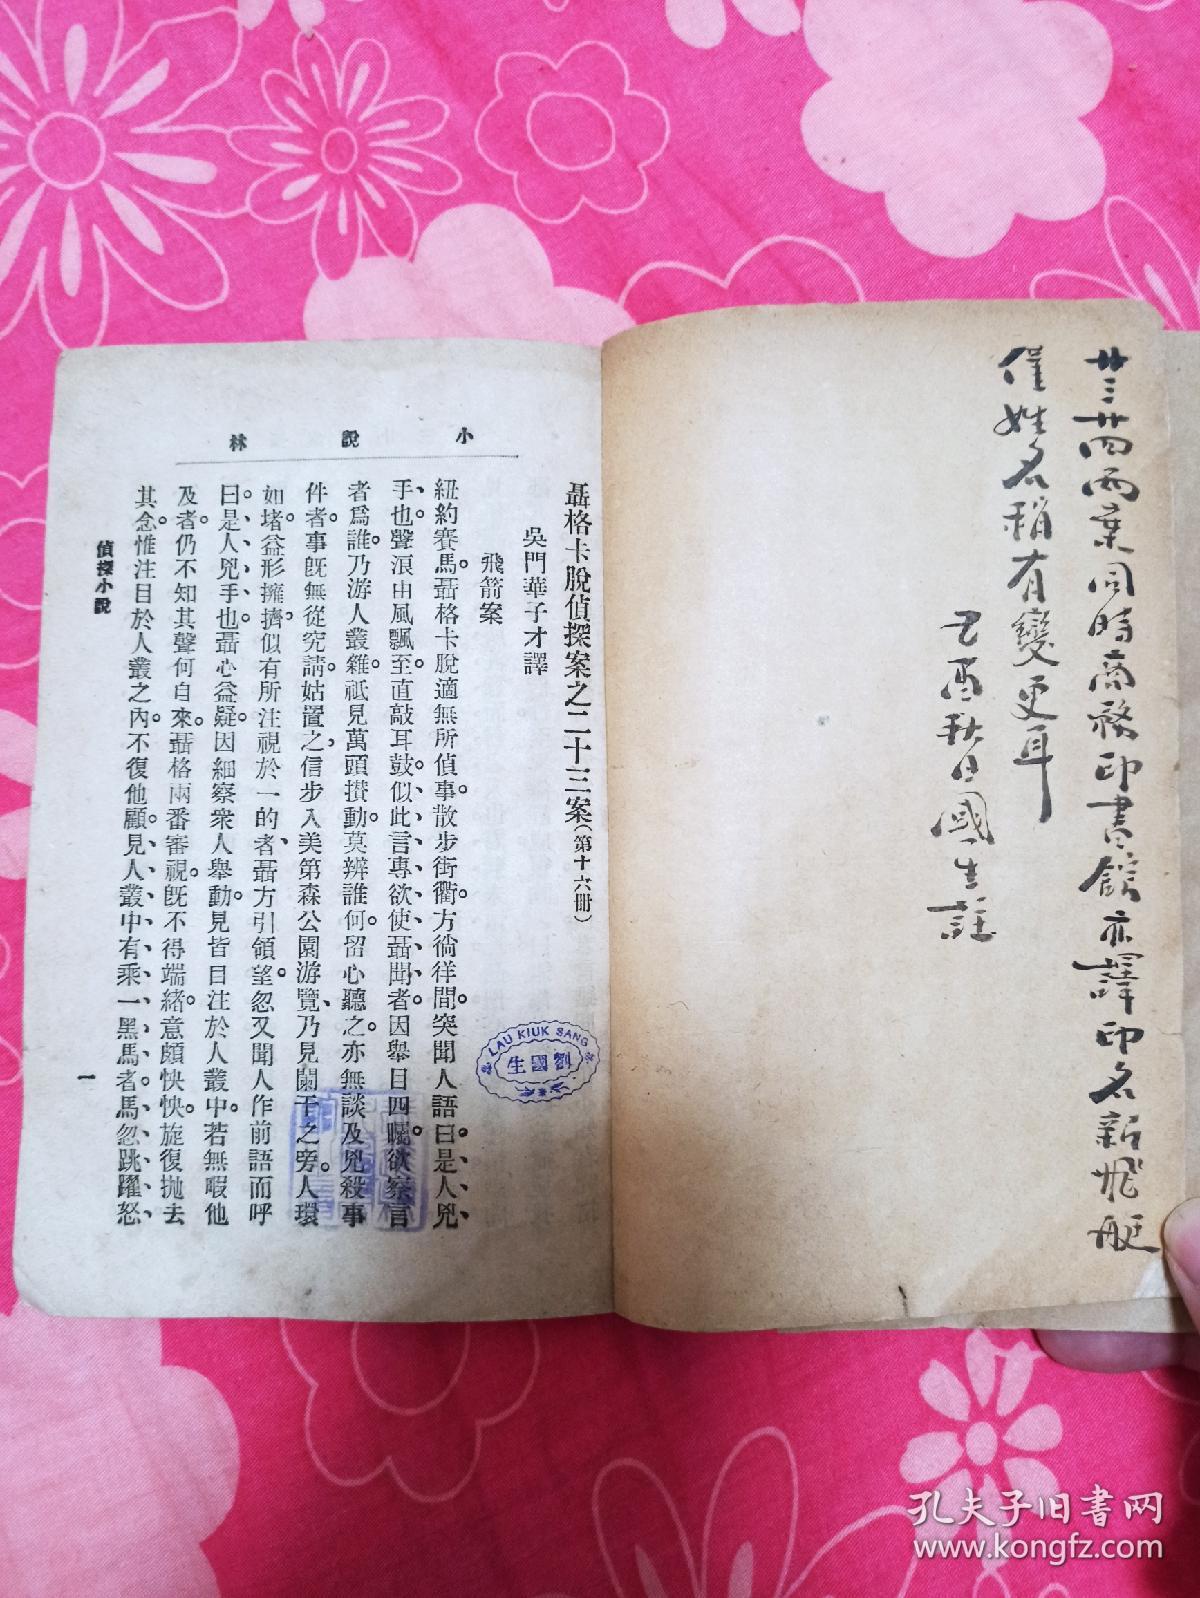 廿三廿四兩案同時商務印書館亦譯印名新飛艇
僅姓名稍有變更耳
己酉秋日國生註
小說林
聶格卡脫偵探案之二十三案（第十六冊）
吳門華子才譯
飛箭案
紐約賽馬。聶格卡脫適無所偵事。散步街衢。方徜徉間。突聞人語曰。是人兇
手也。聲浪由風飄至。直敲耳鼓。似此言專欲使聶聞者。因舉目四矚。欲察言
者爲誰。乃游人叢雜。祇見萬頭攢動。莫辨誰何。留心聽之。亦無談及兇殺事
件者。事旣無從究詰。姑置之。信步入美第森公園游覽。乃見闌干之旁。人環
如堵。益形擁擠。似有所注視於一的者。聶方引領望。忽又聞人作前語而呼
曰。是人兇手也。聶心益疑。因細察衆人舉動。見皆目注於人叢中。若無暇他
及者。仍不知其聲何自來。聶格兩番審視。旣不得端緒。意頗怏怏。旋復拋去
其念。惟注目於人叢之內。不復他顧。見人叢中有乘一黑馬者。馬忽跳躍怒
偵探小說
一
LAU KIUK SANG
劉國生
孔夫子旧书网
www.kongfz.com